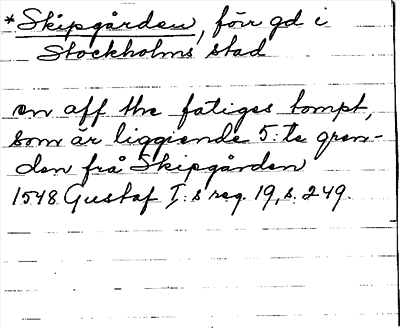 *Skipgården, förr gd i
Stockholms stad
en aff the fatiges tompt,
som är liggiende 5:te gren-
den från Skipgården
1548 Gustaf I:s reg. 19, s. 249.